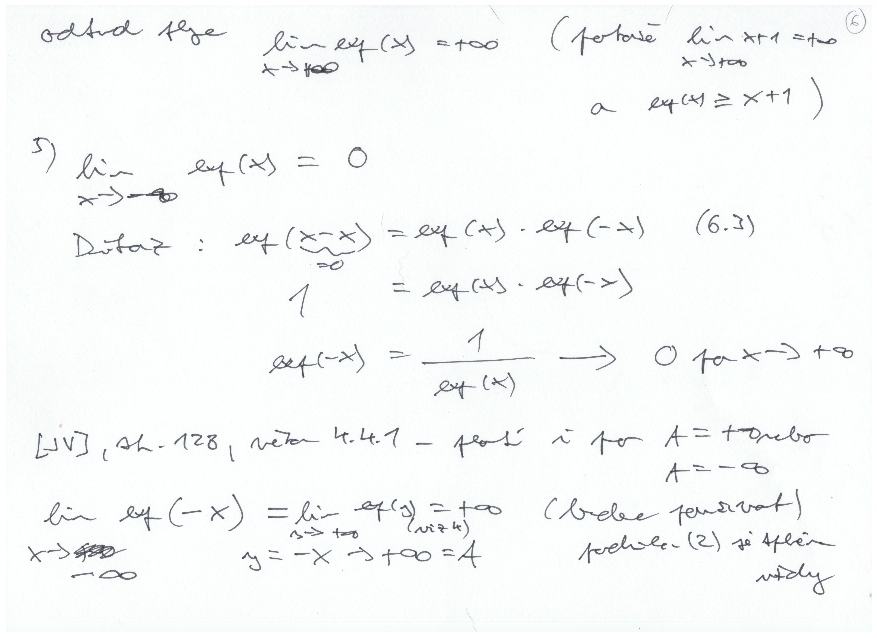 6
odtud plyne lim exp(x) = +∞ (protože lim x+1 = +∞
x→+∞ x→+∞
a exp(x) ≥ x+1)
5) lim exp(x) = 0
x→-∞
Důkaz : exp(x-x) = exp(x) · exp(-x) (6.3)
=0
1 = exp(x) · exp(-x)
exp(-x) = 1 / exp(x) → 0 pro x→ +∞
[JV], str. 128, věta 4.4.1 - platí i pro A = +∞ nebo
A = -∞
lim exp(-x) = lim exp(y) = +∞ (budeme používat)
x→ -∞ y→ +∞ (viz 4) podmínka (2) je splněna
y = -x → +∞ = A vždy